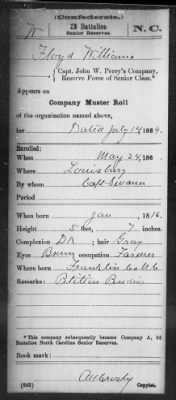 (Confederate.)
W 2d Battalion Senior Reserves. N.C.
Floyd Williams
Capt. John W. Perry's Company,
Reserve Force of Senior Class.*
Appears on
Company Muster Roll
of the organization named above,
for Dated July 14, 1864.
Enrolled:
When May 24, 186 .
Where Louisburg
By whom Capt Swann
Period
When born Jan, 1816.
Height 5 feet, 7 inches.
Complexion DK; hair Gray
Eyes Brown; occupation Farmer
Where born Franklin Co N.C.
Remarks: Petition Pending
* This company subsequently became Company A, 2d
Battalion North Carolina Senior Reserves.
Book mark:
(642)
Copyist.